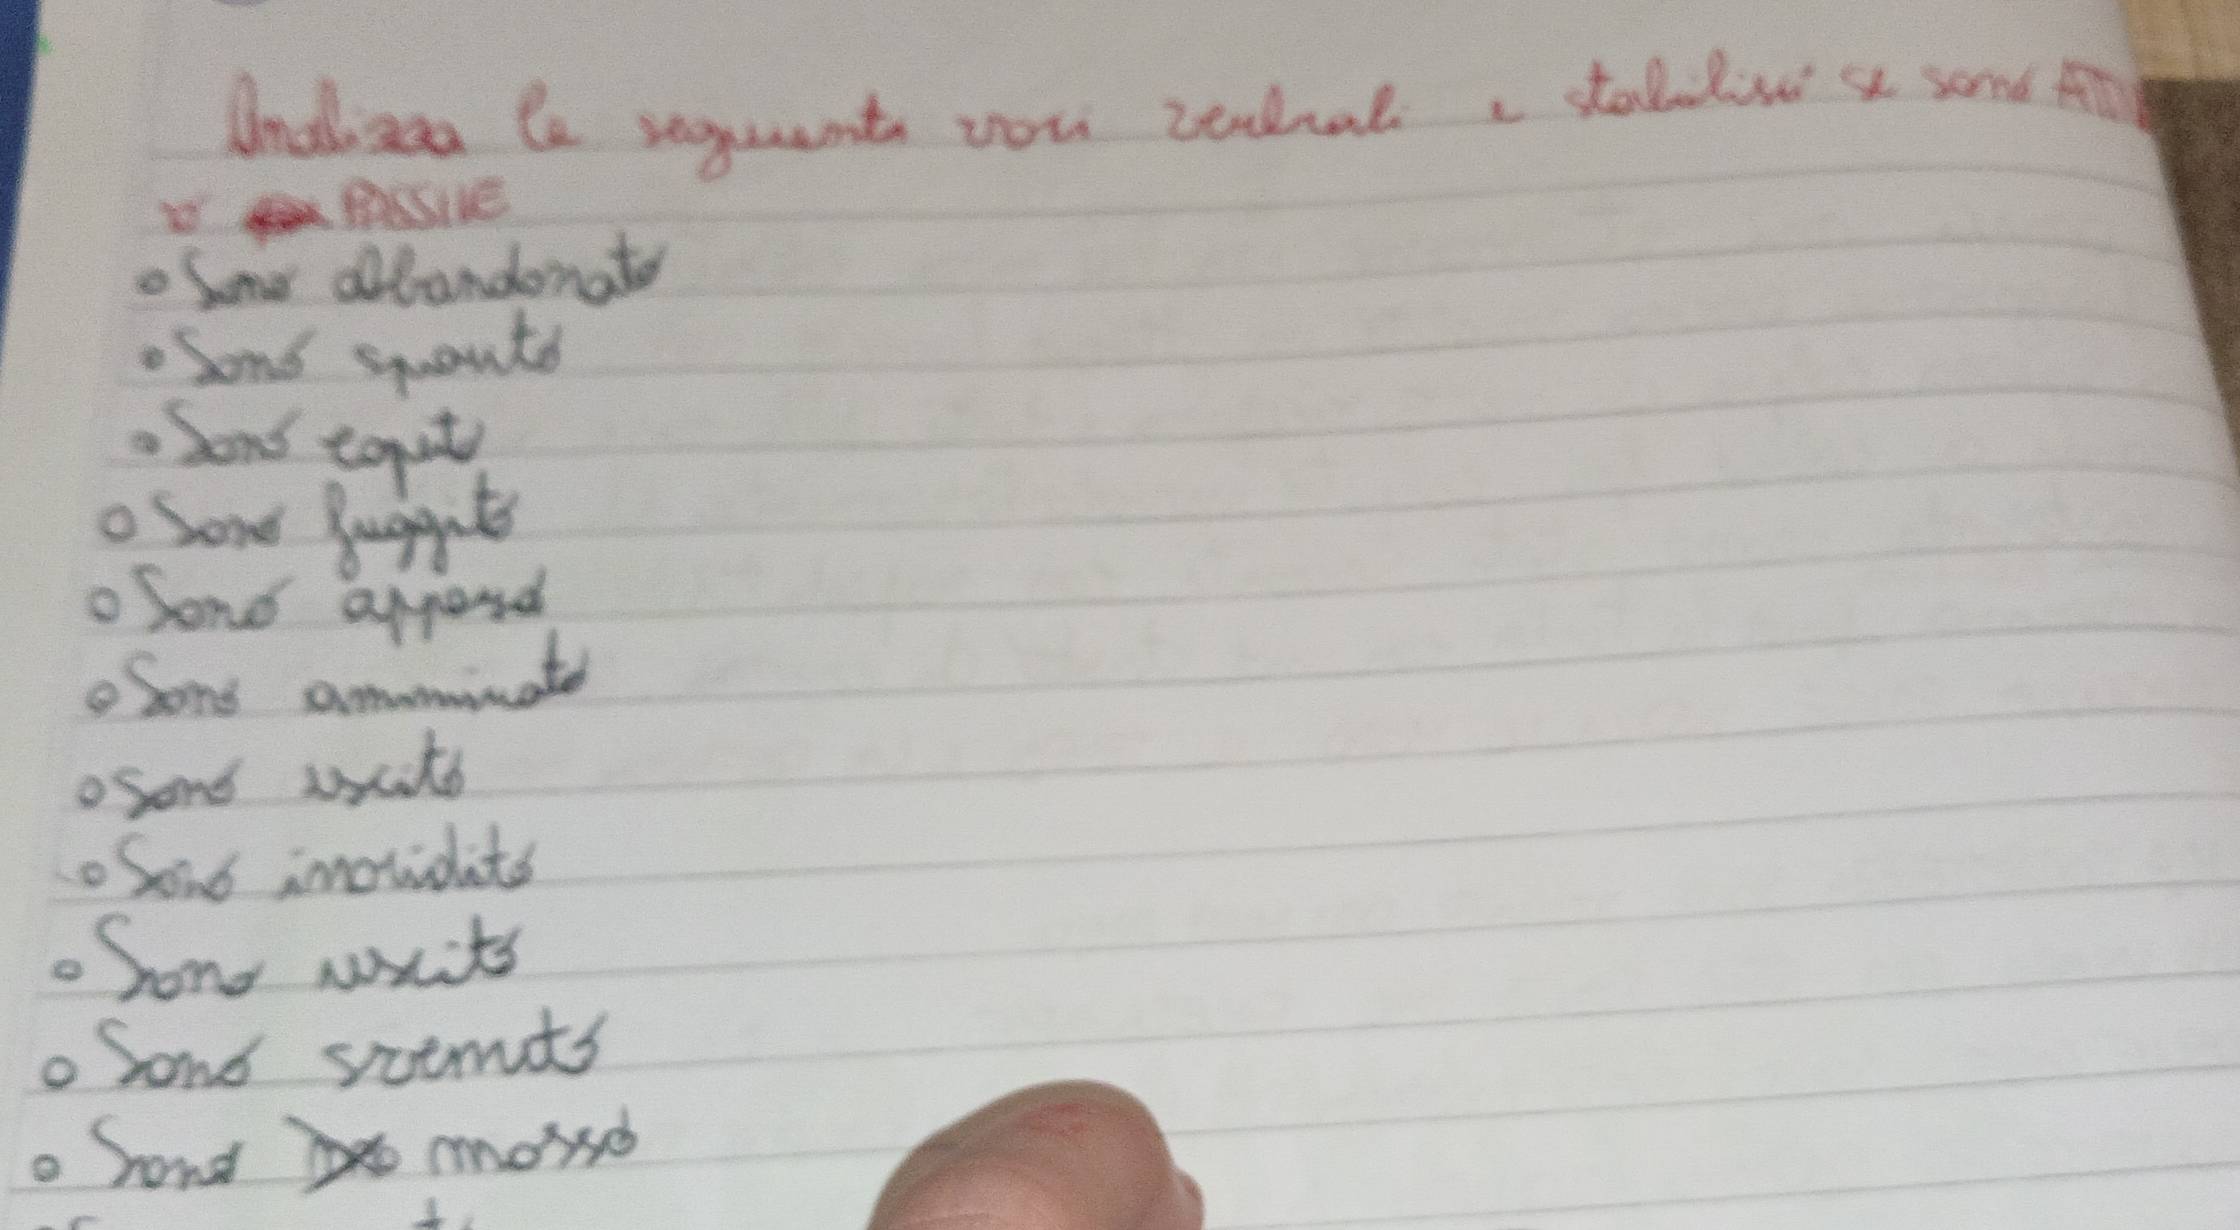 Analizza le seguenti voci verbali e stabilisci se sono
o PASSIVE
Sono abbandonato
Sono sparito
Sono capito
Sono fuggito
Sono apparso
Sono
Sono uscito
Sono invidiato
Sono uscito
Sono svenuto
Sono mosso